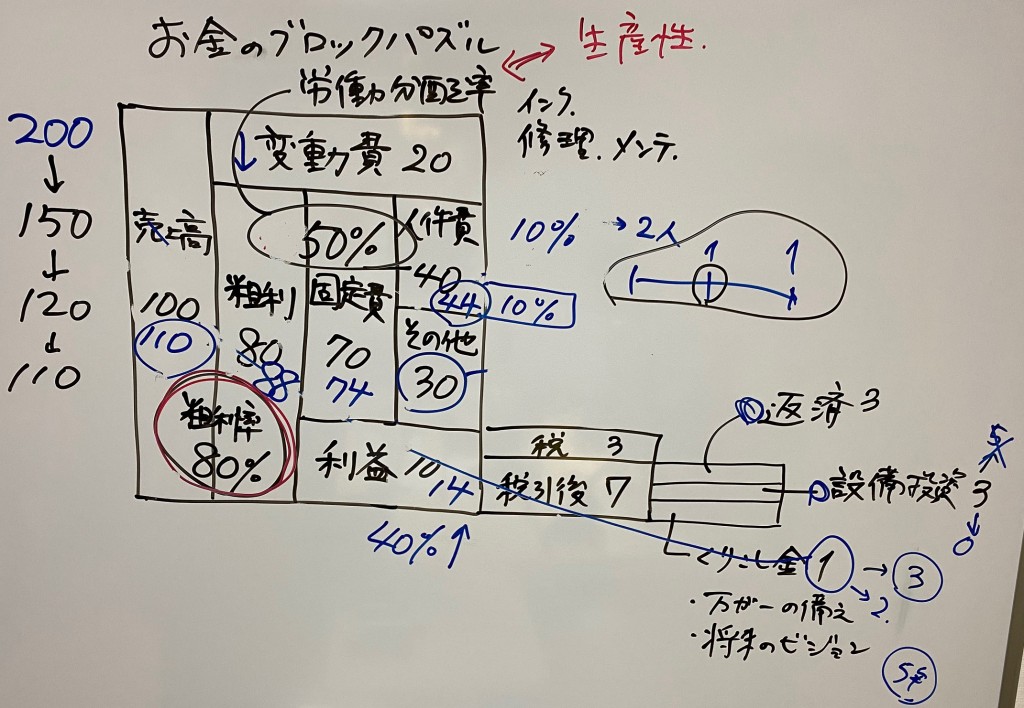 お金のブロックパズル
生産性.
労働分配率
インク.
修理.メンテ.
200
↓
150
↓
120
↓
110
↓変動費 20
売上高
50%
人件費
10% →2人
1
1
粗利
固定費
40
44
10%
100
110
80
88
70
74
その他
30
粗利率
80%
利益 10
14
40%↑
税 3
税引後 7
返済 3
設備投資 3
5
↓
0
くりこし金 1 → 3
→2.
・万が一の備え
・将来のビジョン